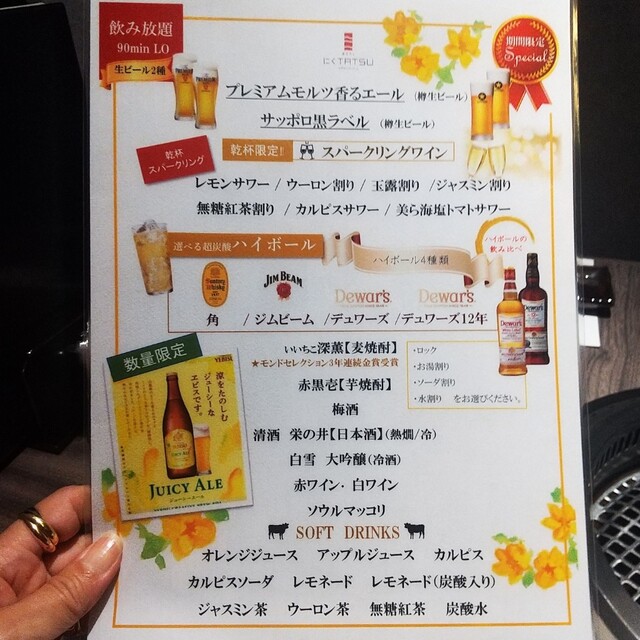 飲み放題
90min LO
生ビール2種
にくTATSU
期間限定
Special
プレミアムモルツ香るエール （樽生ビール）
サッポロ黒ラベル （樽生ビール）
乾杯
スパークリング
乾杯限定!! スパークリングワイン
レモンサワー / ウーロン割り / 玉露割り /ジャスミン割り
無糖紅茶割り / カルピスサワー / 美ら海塩トマトサワー
選べる超炭酸ハイボール
ハイボール4種類
ハイボールの
飲み比べ
JIM BEAM
Dewar's
Dewar's
角 / ジムビーム / デュワーズ / デュワーズ12年
Dewar's
Dewar's
数量限定
いいちこ深薫【麦焼酎】
★モンドセレクション3年連続金賞受賞
赤黒壱【芋焼酎】
梅酒
・ロック
・お湯割り
・ソーダ割り
・水割り をお選びください。
YEBISU
涼をたのしむ
ジューシーな
ヱビスです。
JUICY ALE
ジューシーエール
清酒 栄の井【日本酒】(熱燗/冷)
白雪 大吟醸(冷酒)
赤ワイン・白ワイン
ソウルマッコリ
SOFT DRINKS
オレンジジュース アップルジュース カルピス
カルピスソーダ レモネード レモネード(炭酸入り)
ジャスミン茶 ウーロン茶 無糖紅茶 炭酸水